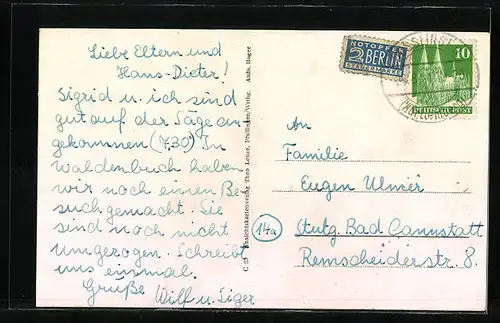 Liebe Eltern und
Hans-Dieter!
Sigrid u. ich sind
gut auf der Säge an-
gekommen (7.30) In
Waldenbuch haben
wir noch einen Be
such gemacht. Sie
sind noch nicht
umgezogen. Schreibt
uns einmal.
Grüße Wilf u.
Ansichtskartenverlag Theo Leuze, Pfullingen/Württbg.
NOTOPFER
2 BERLIN
STEUERMARKE
10
DEUTSCHE POST
An
Familie
Eugen Ulmer
14a
Stutg. Bad Cannstatt
Remscheiderstr. 8.